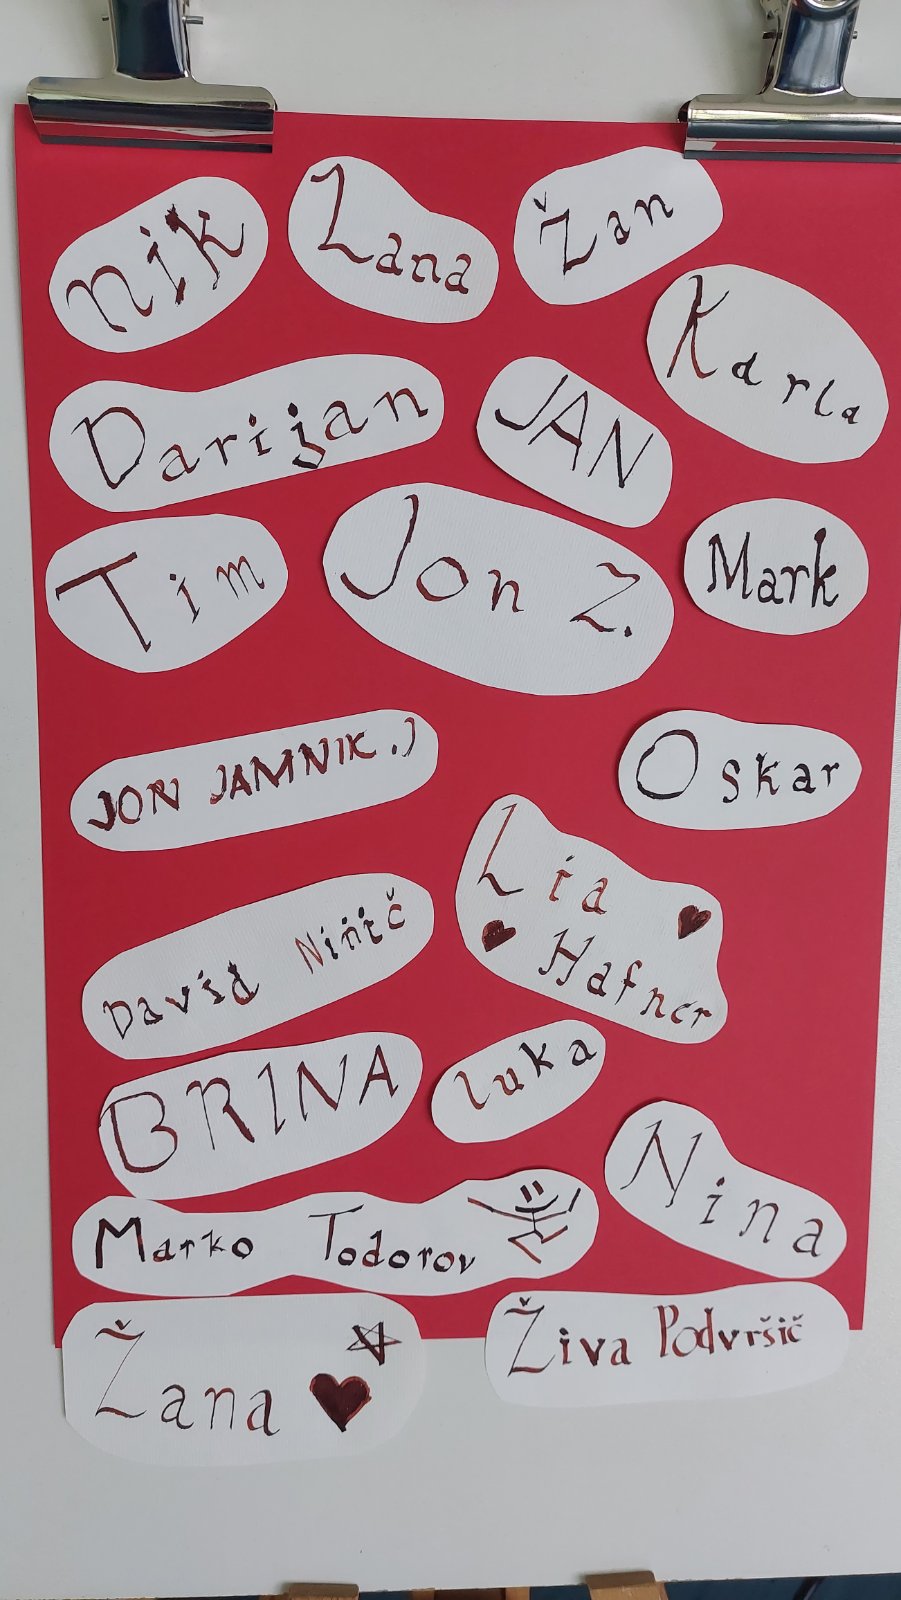 nik
Lana
Žan
Karla
Darijan
JAN
Tim
Jon Z.
Mark
JON JAMNIK .)
Oskar
Lia
Hafner
David Ninič
BRINA
luka
Nina
Marko Todorov
Žana
Živa Podvršič